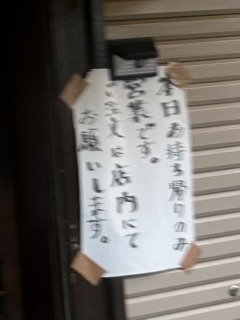 本日お持ち帰りのみ
営業です。
ご注文は店内にて
お願いします。